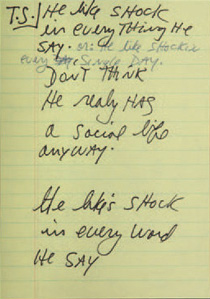 T.S./ He like SHOCK
in every Thing He
SAY. or: He like SHOCKin
every Single DAY.
DON'T THINK
He realy HAS
a social life
anyWAY.
He like's SHOCK
in every Word
He SAY